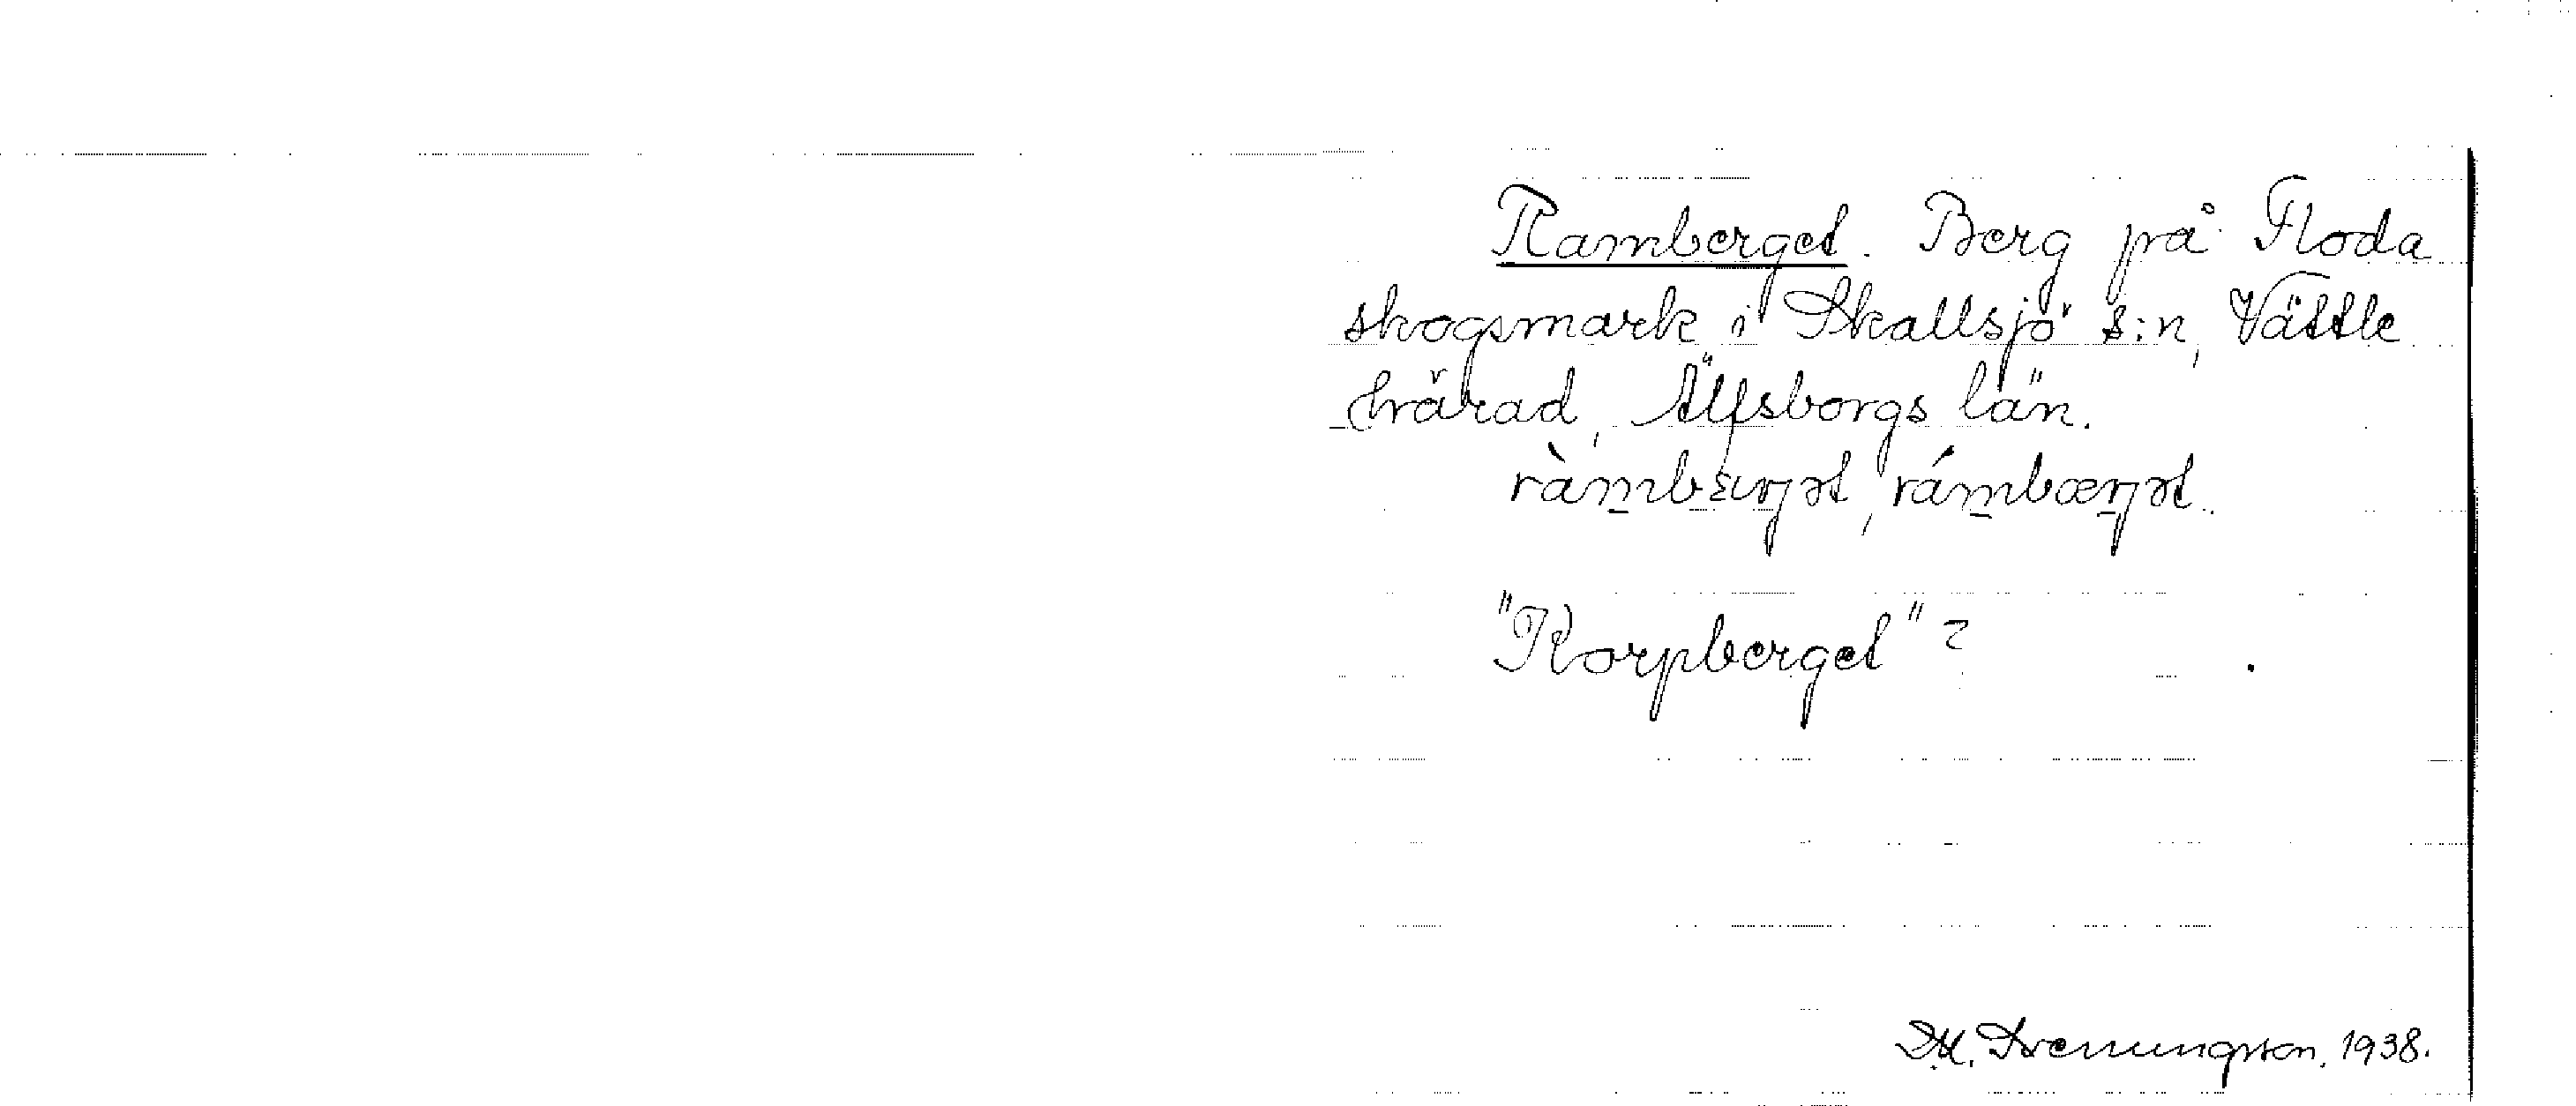 Ramberget. Berg på Floda
skogsmark i Skallsjö s:n, Vättle
härad, Älfsborgs län.
ràmbærjət, rámbærjət.
"Korpberget"?
1938.